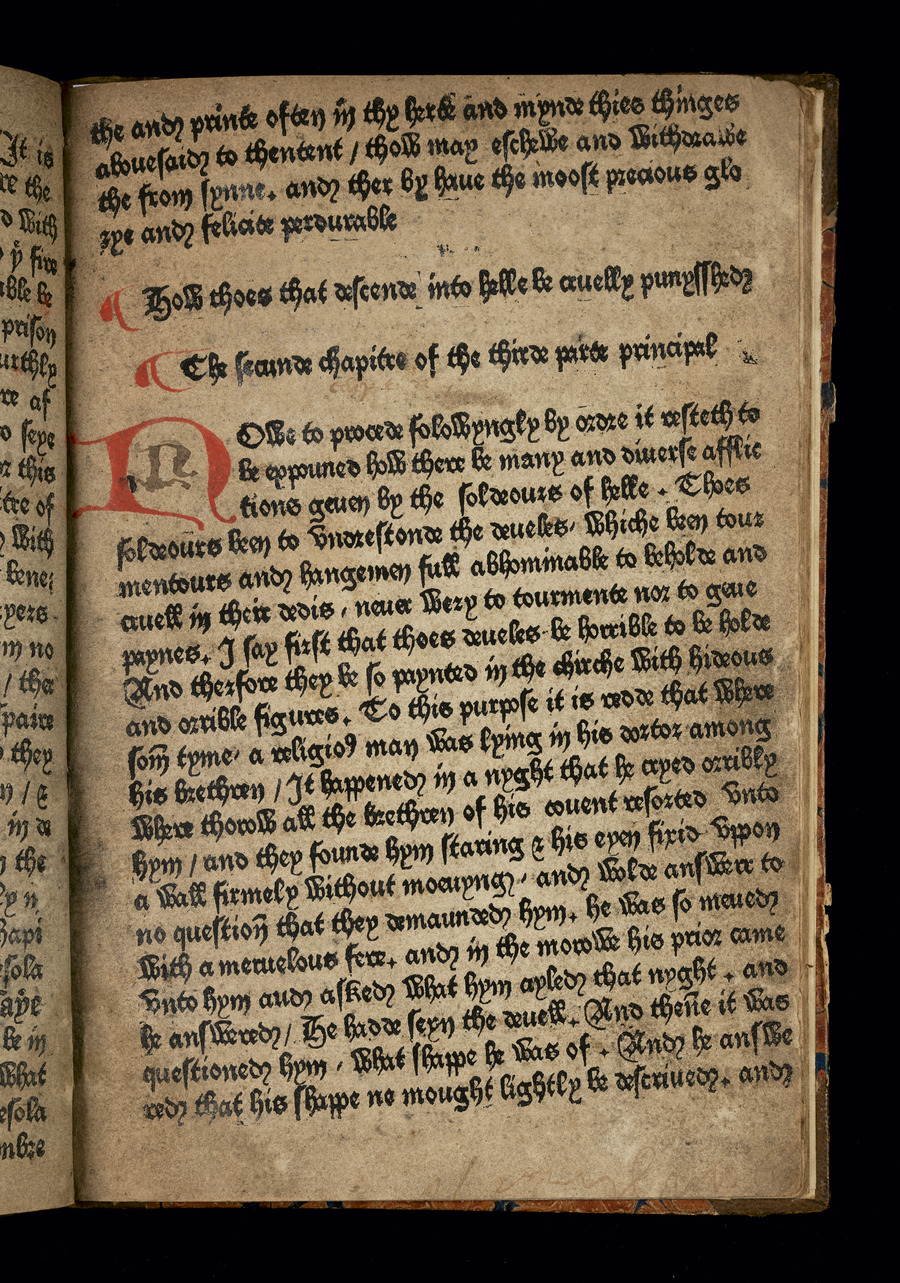 the and printe often in thy herte and mynde thies thinges
abouesaid to thentent / thow may eschewe and withdrawe
the from synne. and ther by haue the moost precious glo
rye and felicite perdurable
¶ How thoes that descende into helle be cruelly punysshed
¶ The secunde chapitre of the thirde parte principal
NOwe to procede folowyngly by ordre it resteth to
be expouned how there be many and diuerse afflic
tions geuen by the soldeours of helle . Thoes
soldeours been to vndrestonde the deueles, whiche been tour
mentours and hangemen full abhominable to beholde and
cruell in their dedis , neuer wery to tourmente nor to geue
paynes. I say first that thoes deueles be horrible to be holde
And therfore they be so paynted in the chirche with hideous
and orrible figures. To this purpose it is redde that where
som̄ tyme, a religioꝰ man was lying in his dortor among
his brethren / It happened in a nyght that he cryed orribly
where thorow all the brethren of his couent resorted vnto
hym / and they founde hym staring & his eyen fixid vppon
a wall firmely without moeuyng , and wolde answere to
no question̄ that they demaunded hym. he was so meued
with a meruelous fere. and in the morowe his prior came
vnto hym aud asked what hym ayled that nyght . and
he answered / He hadde seyn the deuell. And then̄e it was
questioned hym , what shappe he was of . And he answe
red that his shappe ne mought lightly be descriued. and
It is
re the
d with
ẏ fire
able be
prison
urthly
re af
o seye
or this
itre of
with
bene;
yers
m no
/ ther
spaire
they
n / &
in de
n the
ly n
hapi
sola
aye
be in
what
esola
mbre